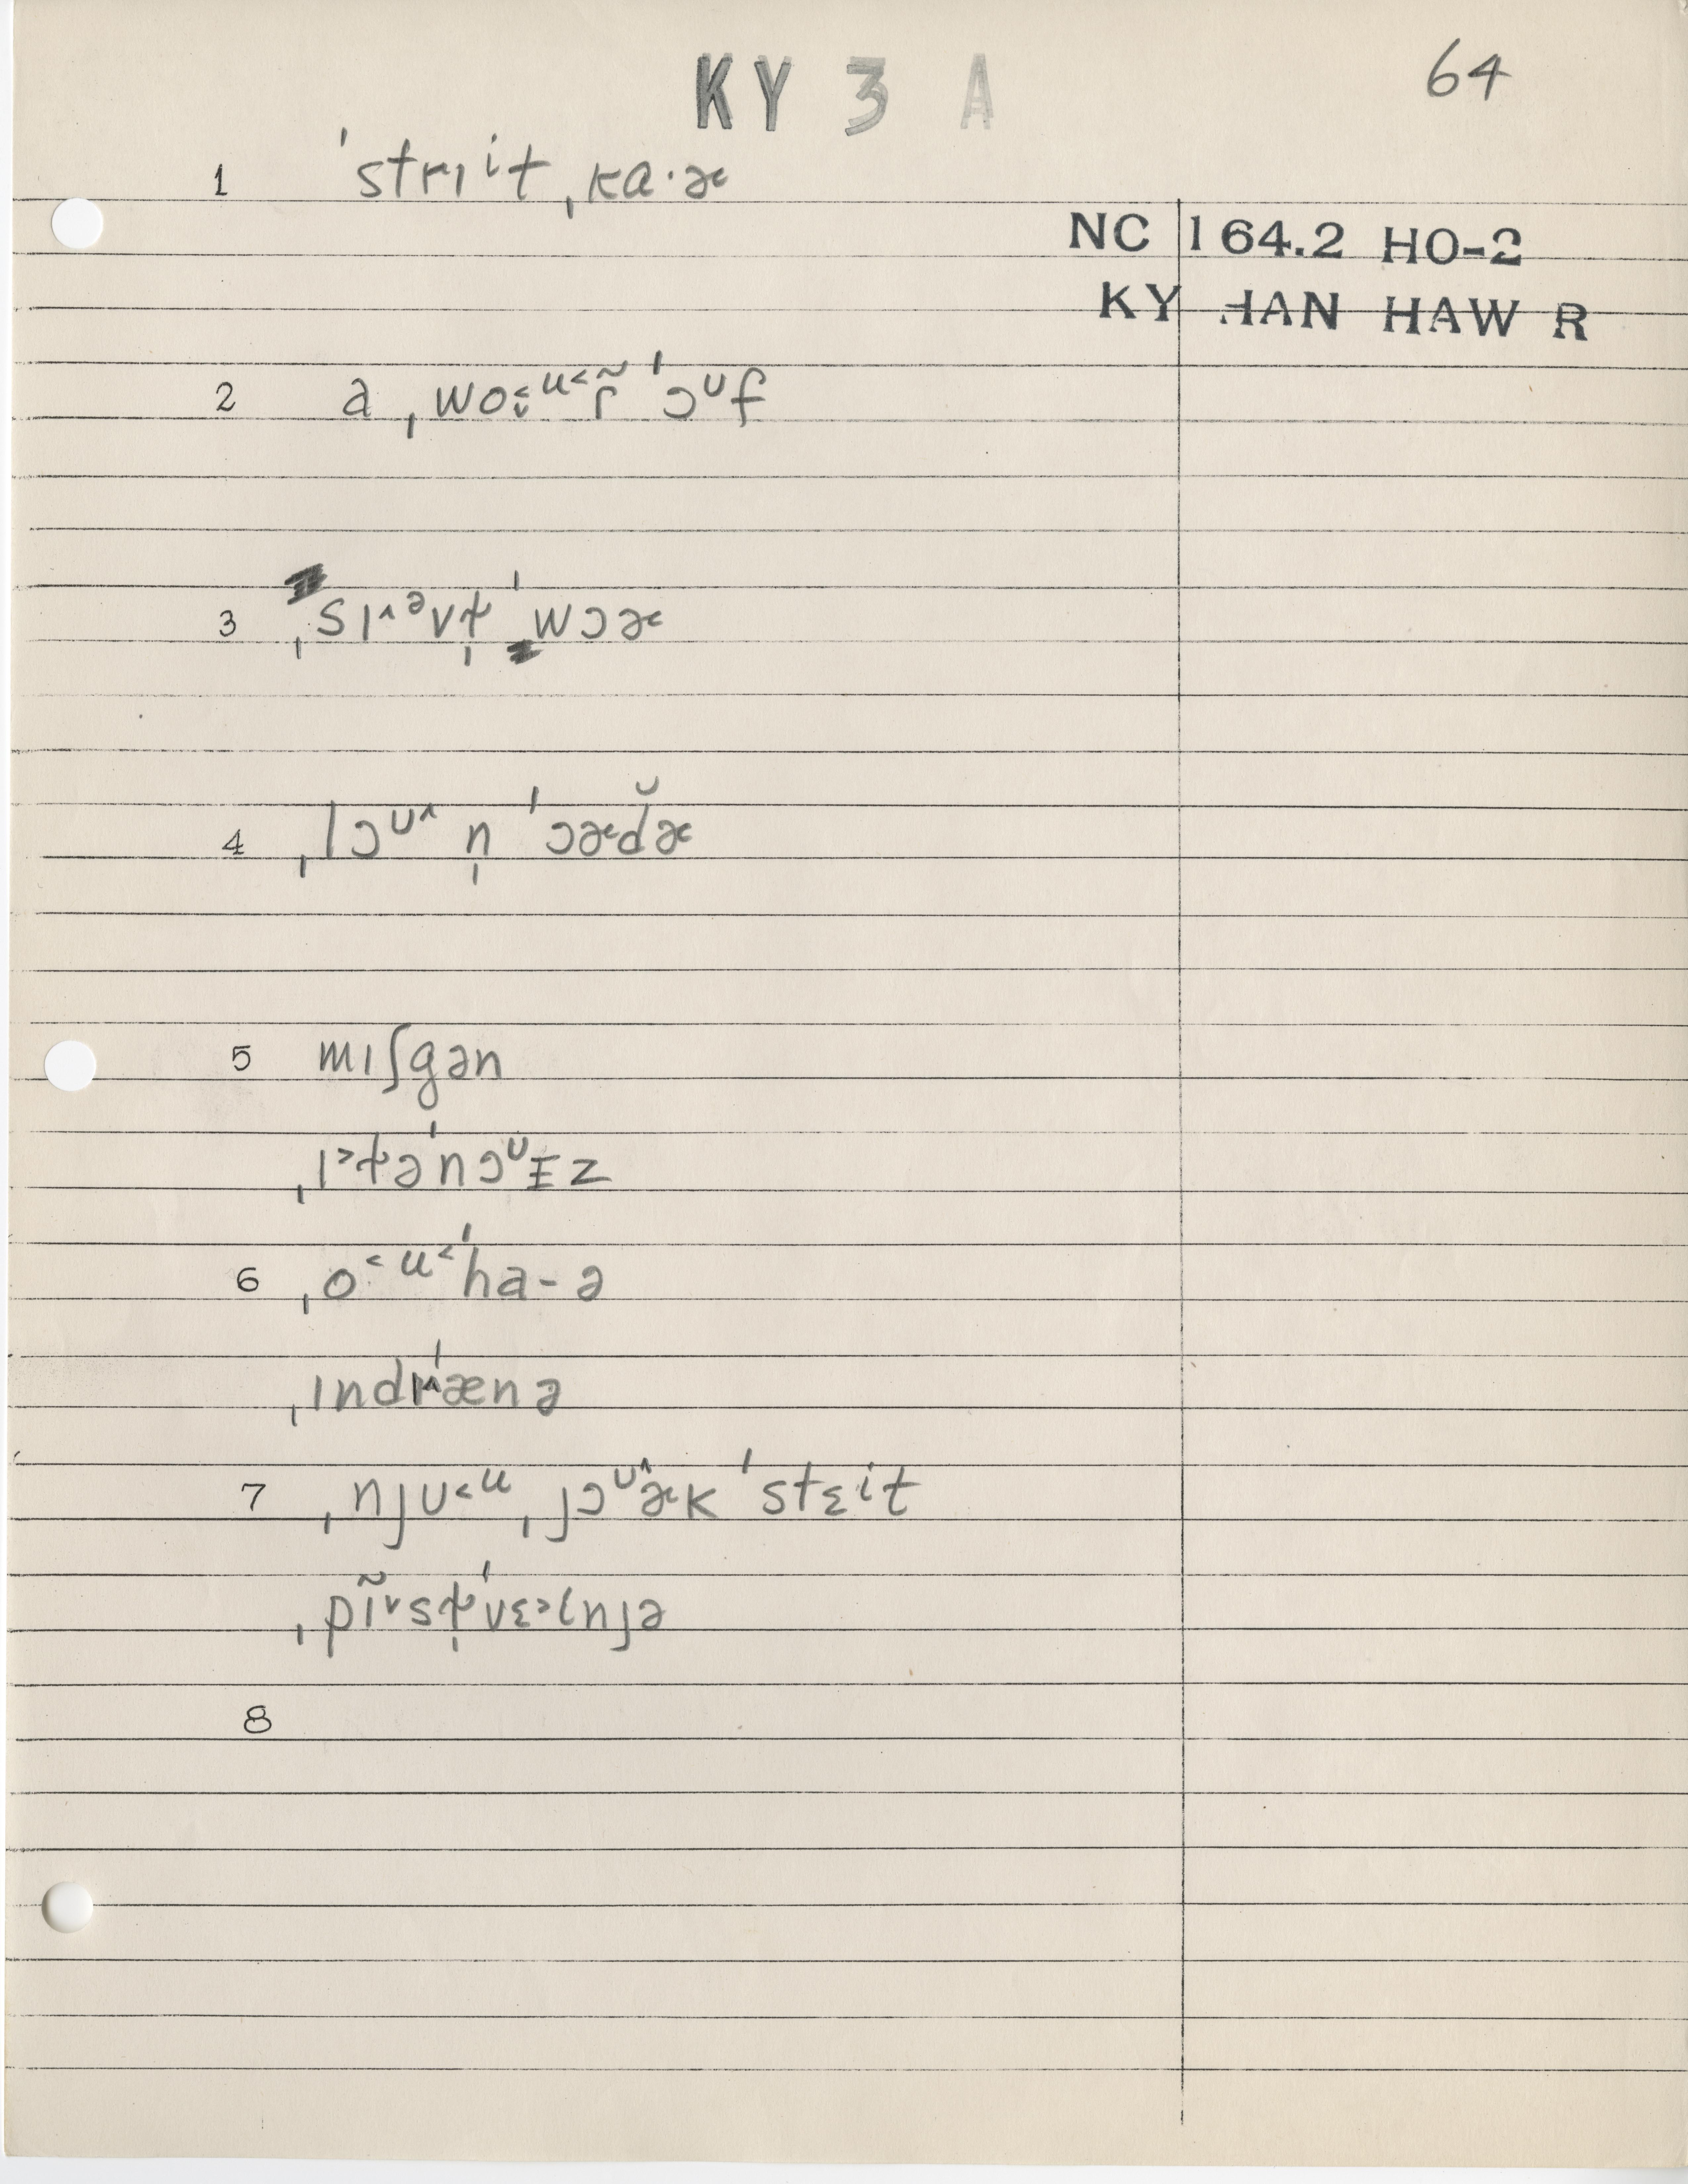 KY 3 A
64
1 ˈstrɪⁱt ˌkɑ·ɚ
NC 164.2 HO-2
KY HAN HAW R
2 ə ˌwo˂̬ᵘ˂ɾ̃ ˈɔᶷf
3 ˌsɪ˄ᵊvt̬̩ ˈwɔɚ
4 ˌlɔᶷ˄ n̩ ˈɔɚd̆ɚ
5 mɪʃgən
ˌɪ˃t̬əˈnɔᶷɪ̵z
6 ˌo˂ᵘ˂ˈhɑ-ə
ˌɪndɪ˄ˈænə
7 ˌnjʊ˂ᵘ ˌjɔᶷ˄ɚk ˈstɛⁱt
ˌpɪ̃˅st̬̩ˈvɛ˃lnjə
8